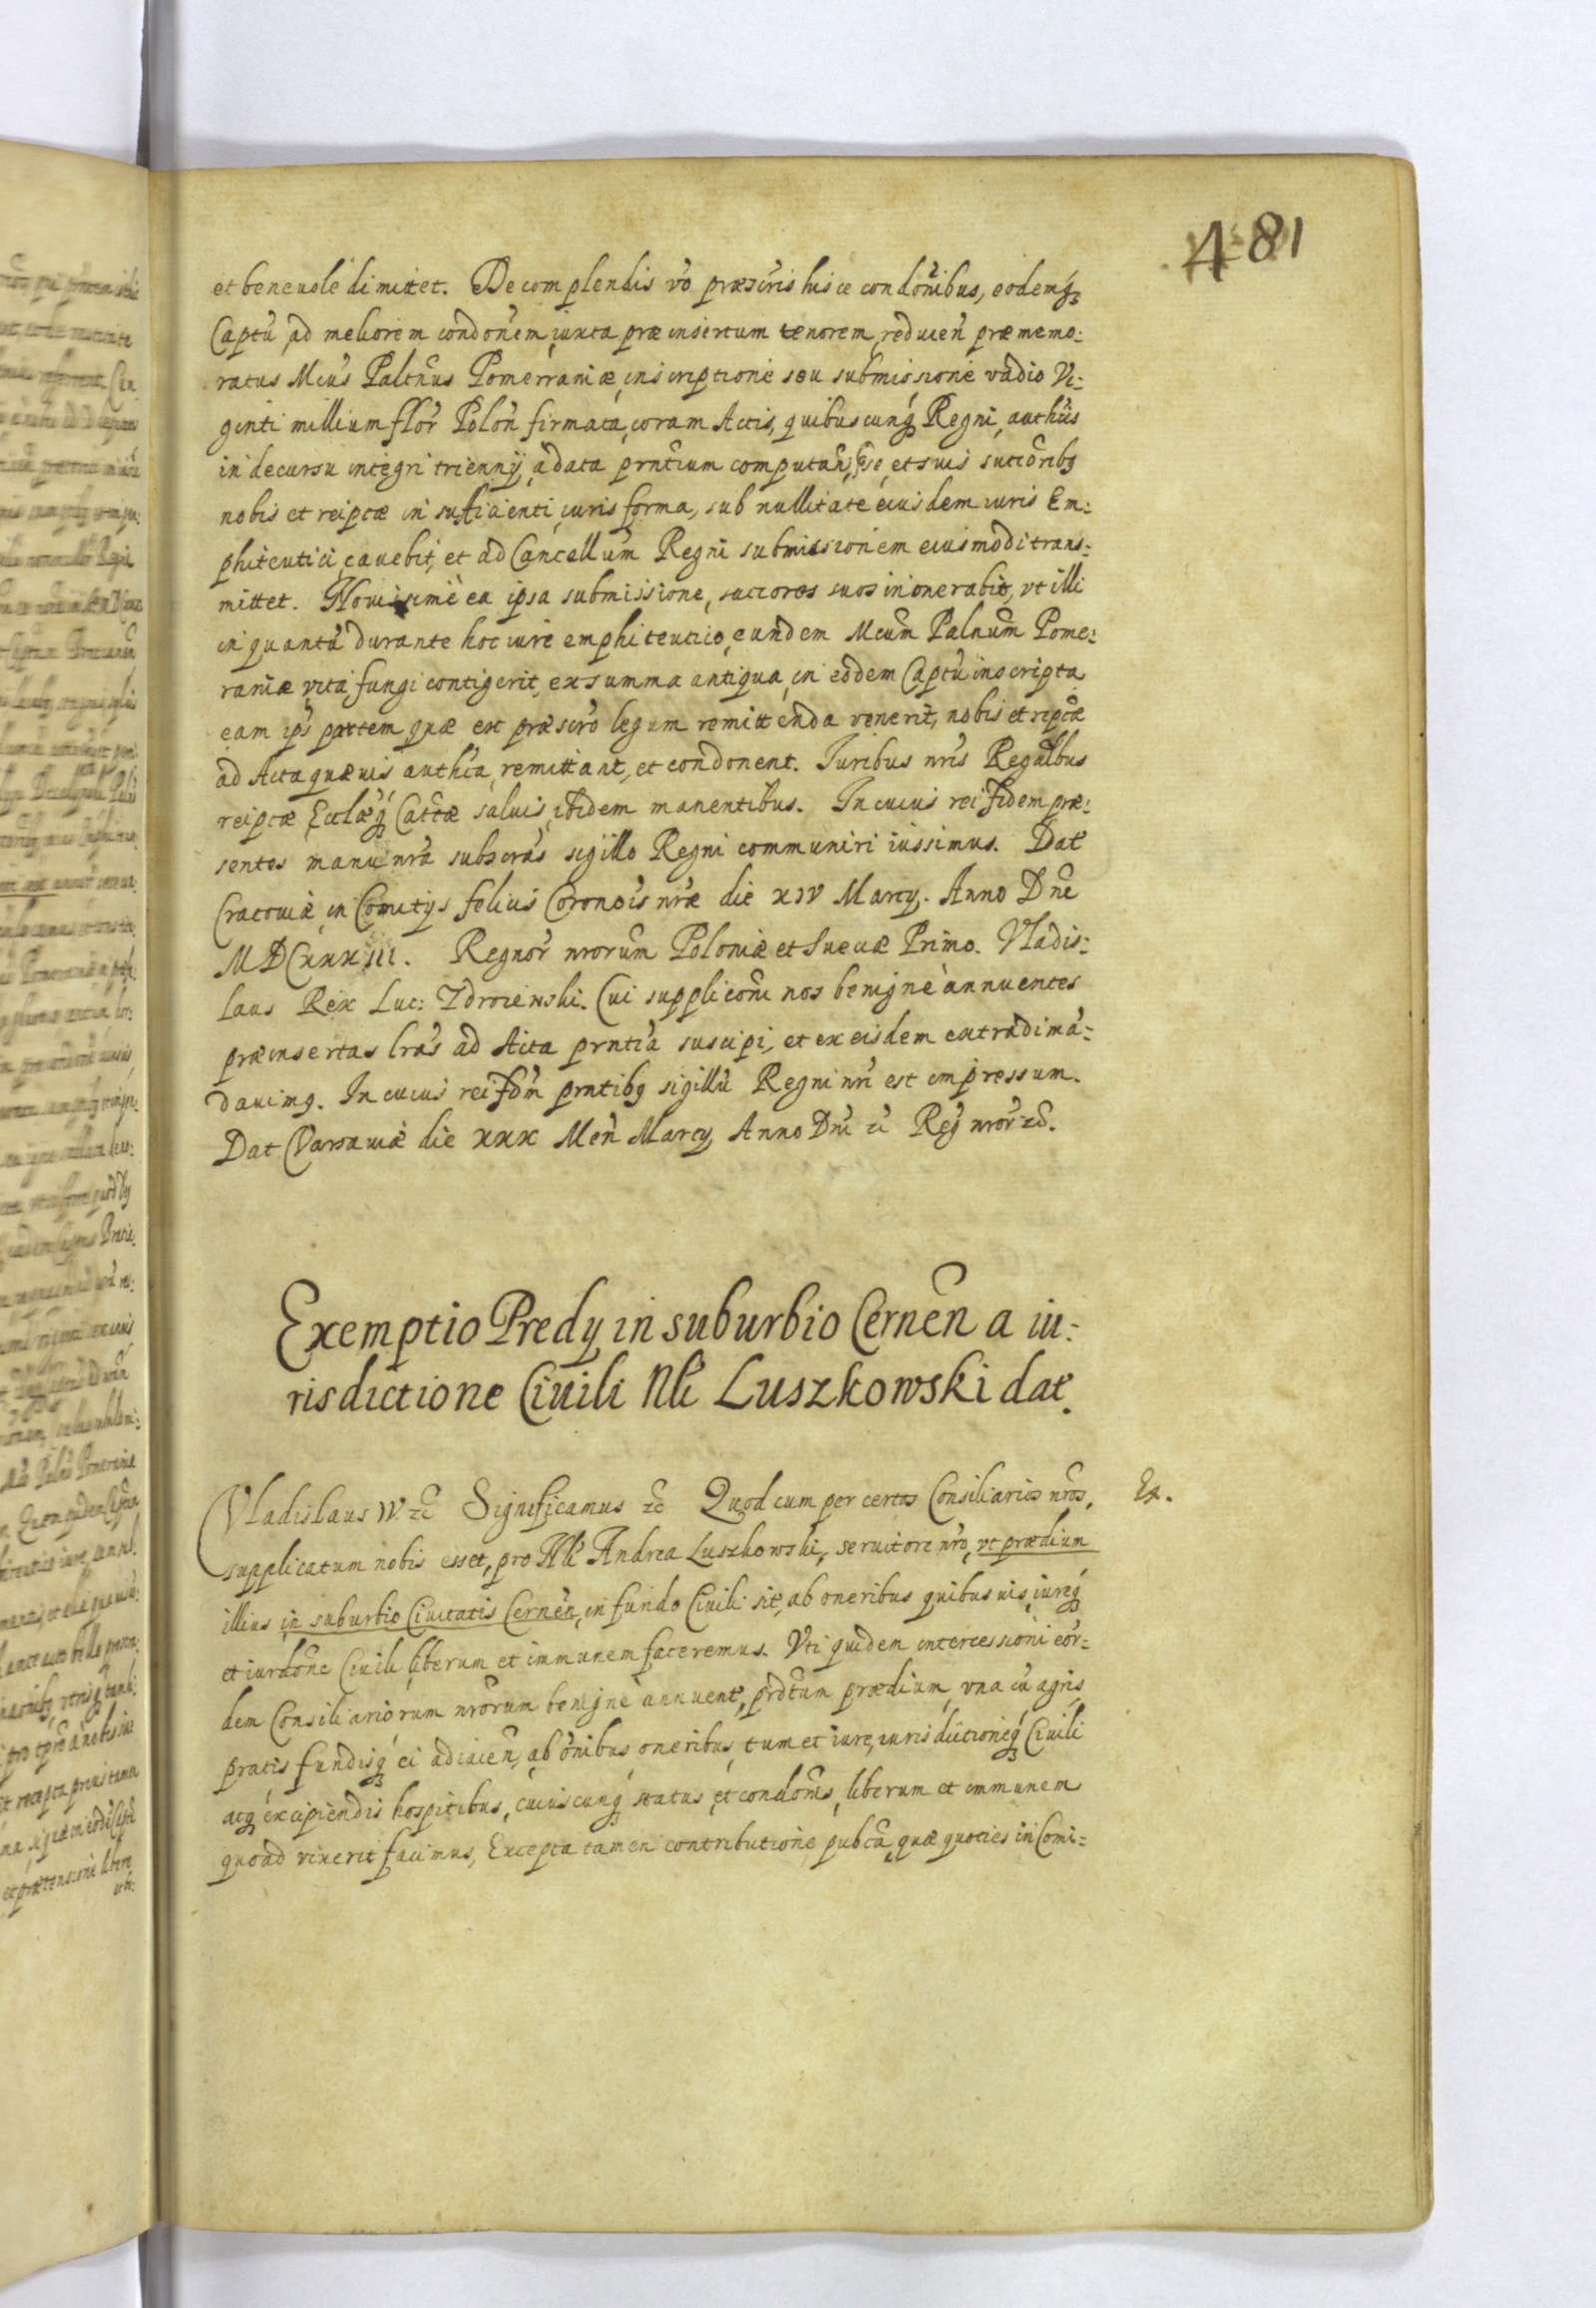 481
et beneuole dimittet. De complendis vo præscris hisce condonibus, eodemq₃
Captu ad meliorem condonem, iuxta præinsertum tenorem, reducen præmemo:
ratus Mcus Paltnus Pomerraniæ, inscriptione seu submissione vadio Vi:
ginti millium flor Polon firmata, coram Actis, quibuscunq₃ Regni, authcis
in decursu integri triennij, a data prntium computan, se, et suis succoribꝫ
nobis et reiptæ in sufficienti iuris forma, sub nullitate eiusdem iuris Em:
phiteutici, cauebit, et ad Cancellum Regni submissionem eiusmodi trans:
mittet. Nouissimè ea ipsa submissione, succores suos inonerabit, vt illi
in quantu durante hoc iure emphiteutico, eundem Mcum Palnum Pome:
raniæ vita fungi contigerit, ex summa antiqua, in eodem Captu inscripta
eam ips partem quæ ex præscro legum remittenda venerit, nobis et reiptæ
ad Acta quæuis authca remittant, et condonent. Iuribus nris Regalbus
reiptæ Ecclæq₃ Cattæ saluis, ibidem manentibus. In cuius rei fidem præ:
sentes manu nra subscras sigillo Regni communiri iussimus. Dat
Cracouiæ in Comitijs felicis Coronois nræ die XIV Marcij. Anno Dne
MDCXXXIII. Regnor nrorum Poloniæ et Sueciæ Primo. Vladis:
laus Rex Luc: Zdroiewski. Cui suppliconi nos benignè annuentes
præinsertas lras ad Acta prntia suscipi, et ex eisdem extradi ma:
dauimꝫ. In cuius rei fdm prntibꝫ sigillu Regni nri est impressum.
Dat Varsauiæ die XXX Men Marcij Anno Dni zc Reg nror zc.
Exemptio Predij in suburbio Cernen a iu:
risdictione Ciuili Nli Luszkowski dat.
Vladislaus IV zc Significamus zc Quod cum per certos Consiliarios nros,
Ex.
supplicatum nobis esset, pro Nli Andrea Luszkowski, seruitore nro, vt prædium
illius in suburbio Ciuitatis Cernen, in fundo Ciuili sit, ab oneribus quibusuis, iureq₃
et iurdone Ciuili liberum et immunem faceremus. Vti quidem intercessioni eor:
dem Consiliariorum nrorum benigne annuent, prdctum prædium, vna cu agris
pratis fundisq₃ ei adiacen, ab onibus oneribus, tum et iure, iurisdictioneq₃ Ciuili
atq₃ excipiendis hospitibus, cuiuscunq₃ status et condonis, liberum et immunem
quoad vixerit facimus, Excepta tamen contributione pubca, quæ quoties in Comi: